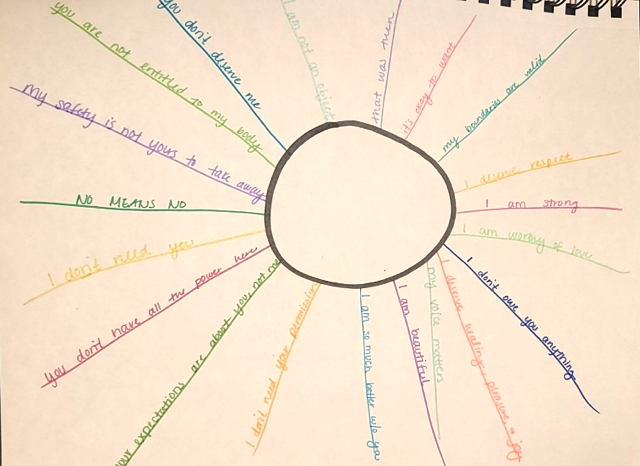 you are not entitled to my body
you don't deserve me
I am not an object
that was then
it's okay to want
my boundaries are valid
I deserve respect
I am strong
I am worthy of love
I don't owe you anything
I deserve healing, pleasure & joy
my voice matters
I am beautiful
I am so much better w/o you
I don't need your permission
your expectations are about you, not me
you don't have all the power here
I don't need you
NO MEANS NO
my safety is not yours to take away